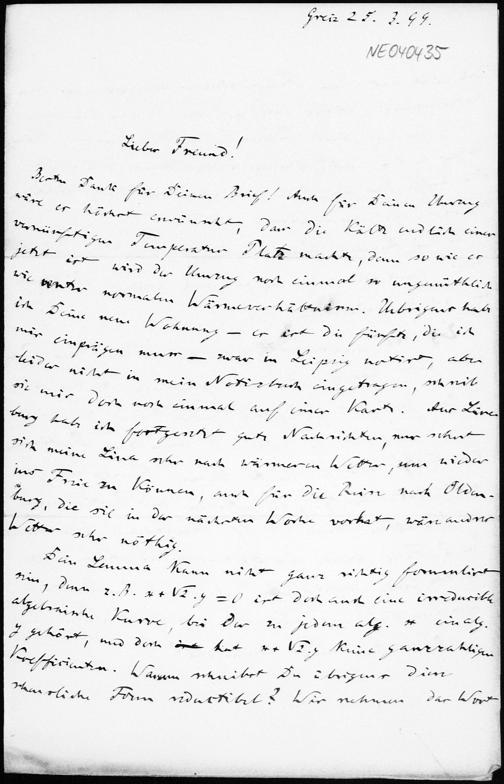 Greiz 25. 3. 99.
NE040435
Lieber Freund!
Besten Dank für Deinen Brief! Auch für Deinen Umzug
wäre es höchst erwünscht, dass die Kälte endlich einer
vernünftigen Temperatur Platz machte, denn so wie es
jetzt ist wird der Umzug noch einmal so ungemüthlich
wie unter normalen Wärmeverhältnissen. Uebrigens habe
ich Deine neue Wohnung – es ist die fünfte, die ich
mir einprägen muss – zwar in Leipzig notirt, aber
leider nicht in mein Notizbuch eingetragen, schreib
sie mir doch noch einmal auf einer Karte. Aus Lüne-
burg habe ich fortgesetzt gute Nachrichten, nur sehnt
sich meine Lina sehr nach wärmerem Wetter, um wieder
ins Freie zu können, auch für die Reise nach Olden-
burg, die sie in der nächsten Woche vorhat, wäre andres
Wetter sehr nöthig.
Dein Lemma kann nicht ganz richtig formulirt
sein, denn z.B. x+√2.y=0 ist doch auch eine irreducible
algebraische Kurve, bei der zu jedem alg. x ein alg.
y gehört, und doch hat x+√2.y keine ganzzahligen
Koefficienten. Warum schreibst Du übrigens diese
scheussliche Form reduktibel? Wir nehmen das Wort